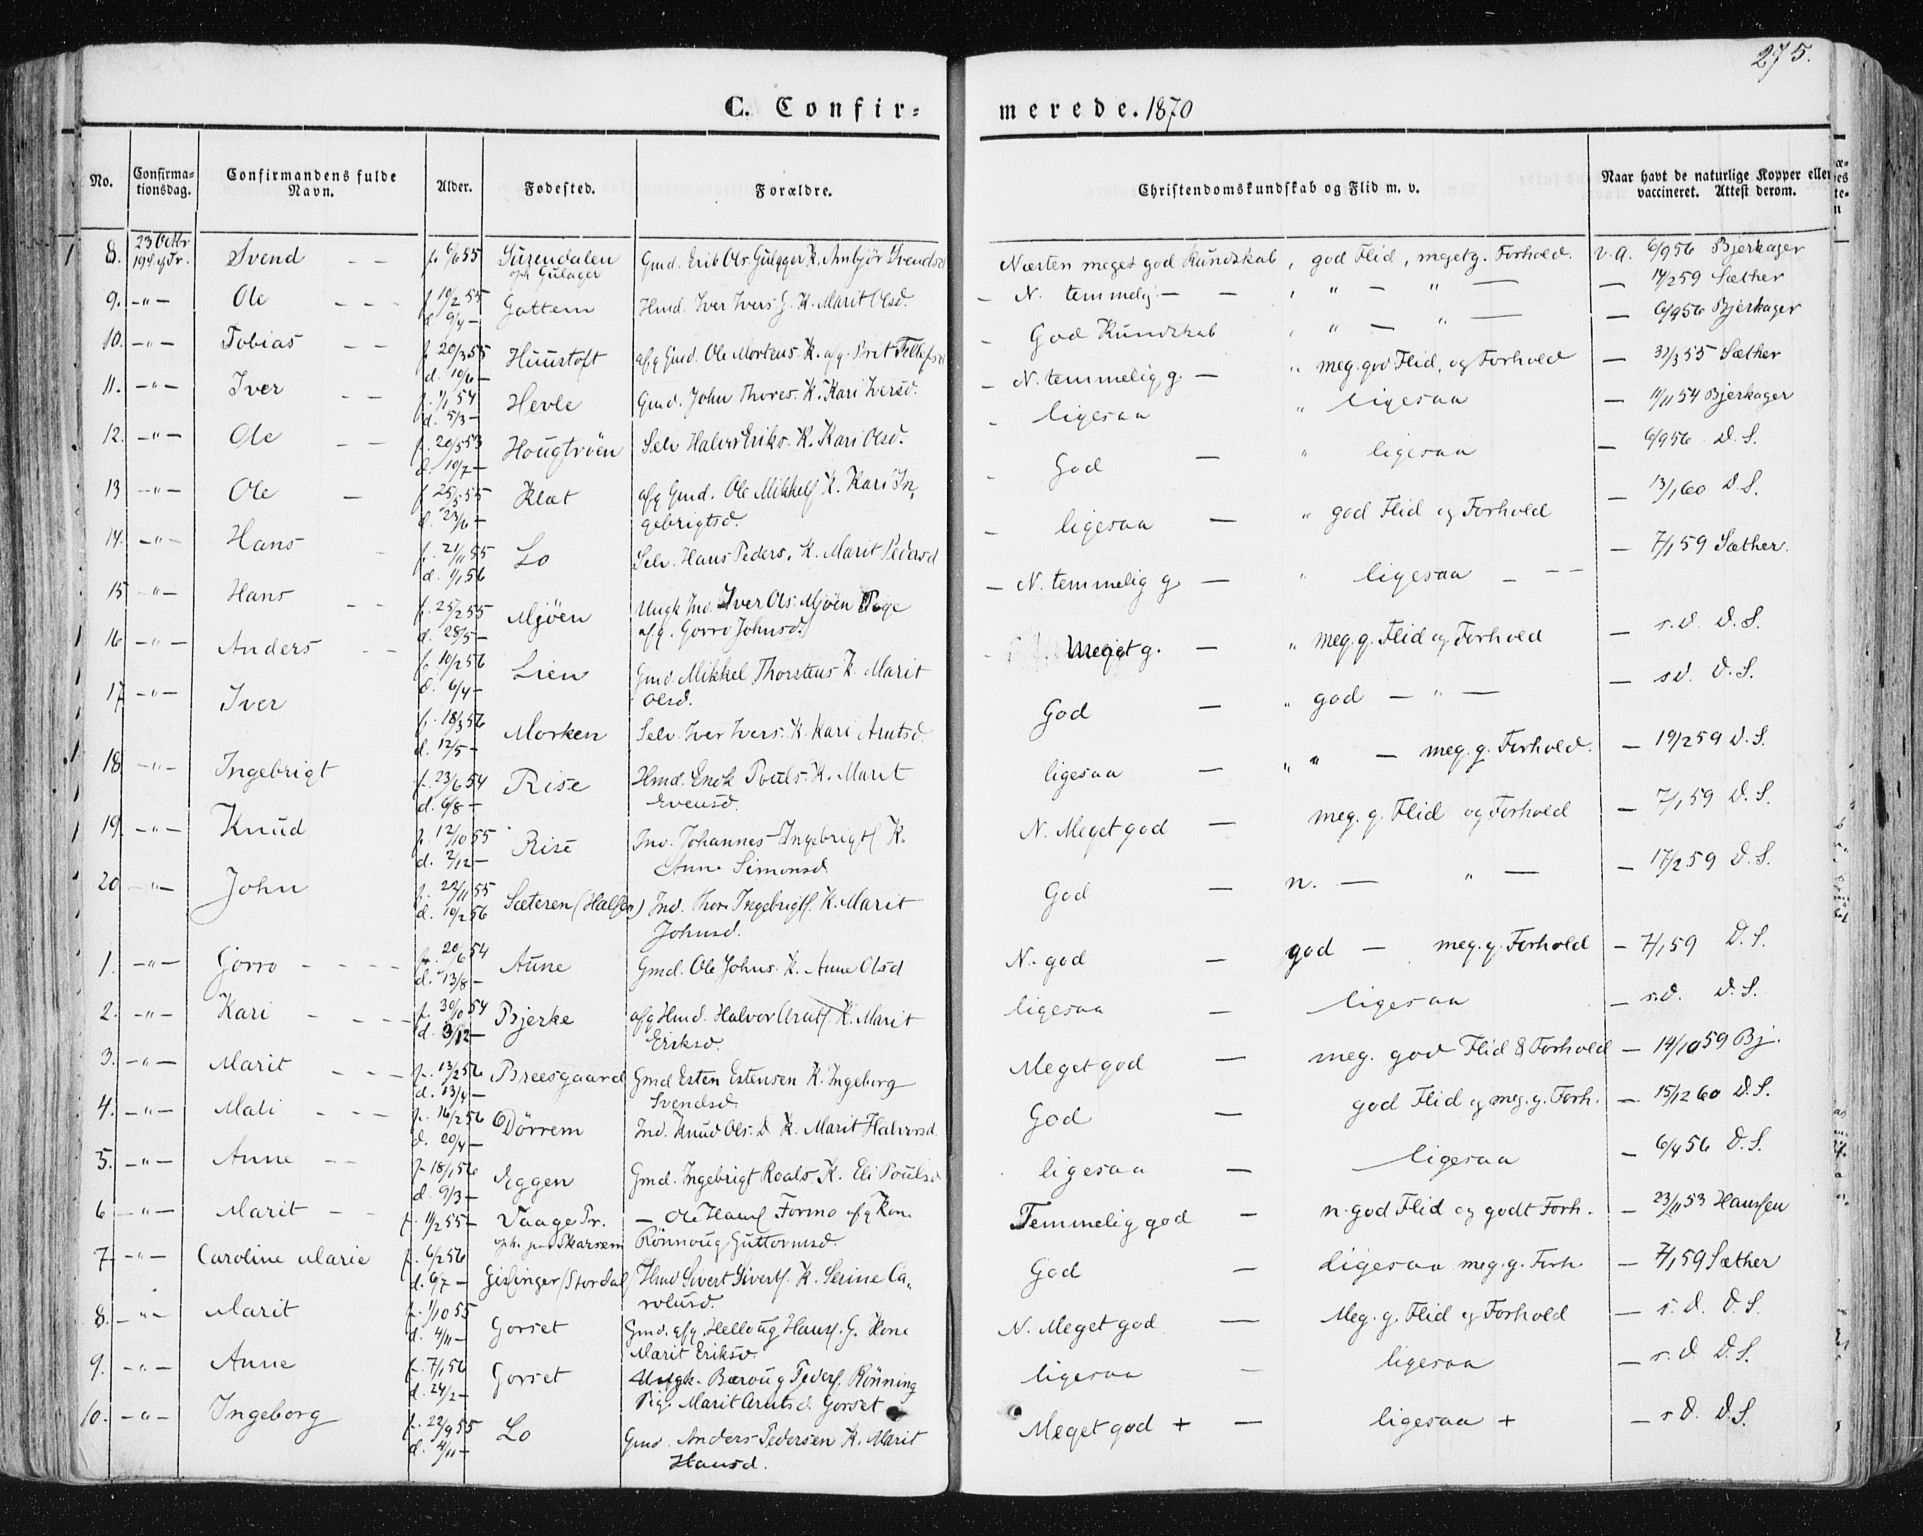 275.
C. Confirmerede. 1870
No. Confirmationsdag. Confirmandens fulde Navn. Alder. Fødested. Forældre. Christendomskundskab og Flid m. v. Naar havt de naturlige Kopper eller vaccineret. Attest derom.
8. 23 Octbr 19 S. e. Tr. Svend f. 6/6 55 Surendalen oph. Gulager Gmd. Erik Ols. Gulager K. Anbjör Svendsd Næsten meget god Kundskab, god Flid, meget g. Forhold. v. a. 6/9 56 Bjerkager
9. -"- Ole f. 19/2 55 d. 9/4 - Gottem Hmd. Iver Ivers. G. K. Marit Olsd. - N. temmelig - - , " - " - - 14/2 59 Sæther
10. -"- Tobias f. 20/3 55 d. 10/6 - Huustoft afg. Gmd. Ole Mortens. K. afg. Brit Tollefsd - God Kundskab , " - " - - 6/9 56 Bjerkager
11. -"- Iver f. 1/1 54 d. 5/3 - Hevle Gmd. John Thores. K. Kari Iversd. - N. temmelig g. - " meg. god Flid, og Forhold - 31/3 55 Sæther
12. -"- Ole f. 20/5 53 d. 10/7 - Hougtröen Selv. Halvor Eriks. K. Kari Olsd. - ligesaa " ligesaa - 11/11 54 Bjerkager
13 -"- Ole f. 25/5 55 d. 23/6 - Klæt afg Gmd. Ole Mikkels. K. Kari Ingebrigtsd. - God - " ligesaa - 6/9 56 D. S.
14. -"- Hans f. 21/11 55 d. 1/1 56 Lo Selv. Hans Peders. K. Marit Pedersd - ligesaa - " god Flid og Forhold - 13/1 60 D. S.
15 -"- Hans f. 25/2 55 d. 28/5 - Mjöen Ungk Ind. Iver Ols. Mjöen Pige afg. Gorro Johnsd. - N. temmelig g. - " ligesaa - 7/1 59 Sæther.
16 -"- Anders f. 10/2 56 d. 6/4 - Lien Gmd. Mikkel Thorstens K. Marit Olsd. Meget g. - " meg. g. Flid og Forhold - s. D. D. S.
17 -"- Iver f. 18/3 56 d. 12/5 - Morken Selv. Iver Ivers. K. Kari Arntsd. God - " god - " - - s D. D. S.
18 -"- Ingebrigt f. 23/6 54 d. 6/8 - Rise Hmd. Erick Pouls. K. Marit Evensd. ligesaa - " " - meg. g. Forhold. - 19/2 59 D. S.
19 -"- Knud f. 12/10 55 d. 2/12 - Rise Ind. Johannes Ingebrigts. K. Anne Simonsd. N. Meget god - meg. g. Flid og Forhold - 7/1 59 D. S.
20 -"- John f. 22/11 55 d. 10/2 56 Sæteren Ind. Thore Ingebrigts. K. Marit Johnsd. God - n. - " - - 17/2 59 D. S.
1. -"- Gorro f. 20/6 54 d. 13/8 - Aune Gmd. Ole Johns. K. Anne Olsd N. god - god - meg. g. Forhold - 7/1 59 D. S.
2. -"- Kari f. 30/10 54 d. 3/12 - Bjerke afg Hmd. Halvor Arnts. K. Marit Eriksd. ligesaa - ligesaa - s. D. D. S.
3. -"- Marit f. 13/2 56 d. 13/4 - Breesgaard Gmd Esten Estensen K. Ingeborg Svendsd. Meget god - meg. god Flid & Forhold - 14/10 59 Bj.
4. -"- Mali f. 16/2 56 d. 20/4 - Dörrem Ind. Knud Ols. D K. Marit Halvorsd. God - god Flid og meg. g. Forh. - 15/12 60 D. S.
5. -"- Anne f. 18/1 56 d. 9/3 - Eggen Gmd. Ingebrigt Roals. K. Eli Poulsd ligesaa - ligesaa - 6/4 56 D. S.
6 -"- Marit f. 11/2 55 - Vaage Pr. oph. paa Skarsem - Ole Hans. Formo afg Kone Rönnoug Guttormsd. Temmelig god - n. god Flid og godt Forh. - 23/11 53 Hansen
7 -"- Caroline Marie f. 6/2 56 d. 6/7 - Gislinger (Stordal) Hmd Sivert Siverts. K. Serine Carolusd. God - ligesaa meg. g. Forh - 7/1 59 Sæther
8. -"- Marit f. 1/10 55 d. 4/11 - Gorset Gmd. afg. Helloug Hans. G. Kone Marit Eriksd. N. Meget god - Meg. g. Flid og Forhold - s. D. D. S.
9. -"- Anne f. 7/1 56 d. 24/2 - Gorset Ungk. Baroug Peders. Rönning Pig. Marit Arntsd. Gorset ligesaa - ligesaa - s. D D. S.
10. -"- Ingeborg f. 22/9 55 d. 4/11 - Lo Gmd. Anders Pedersen K. Marit Hansd. Meget god + - ligesaa + - s D. D. S.